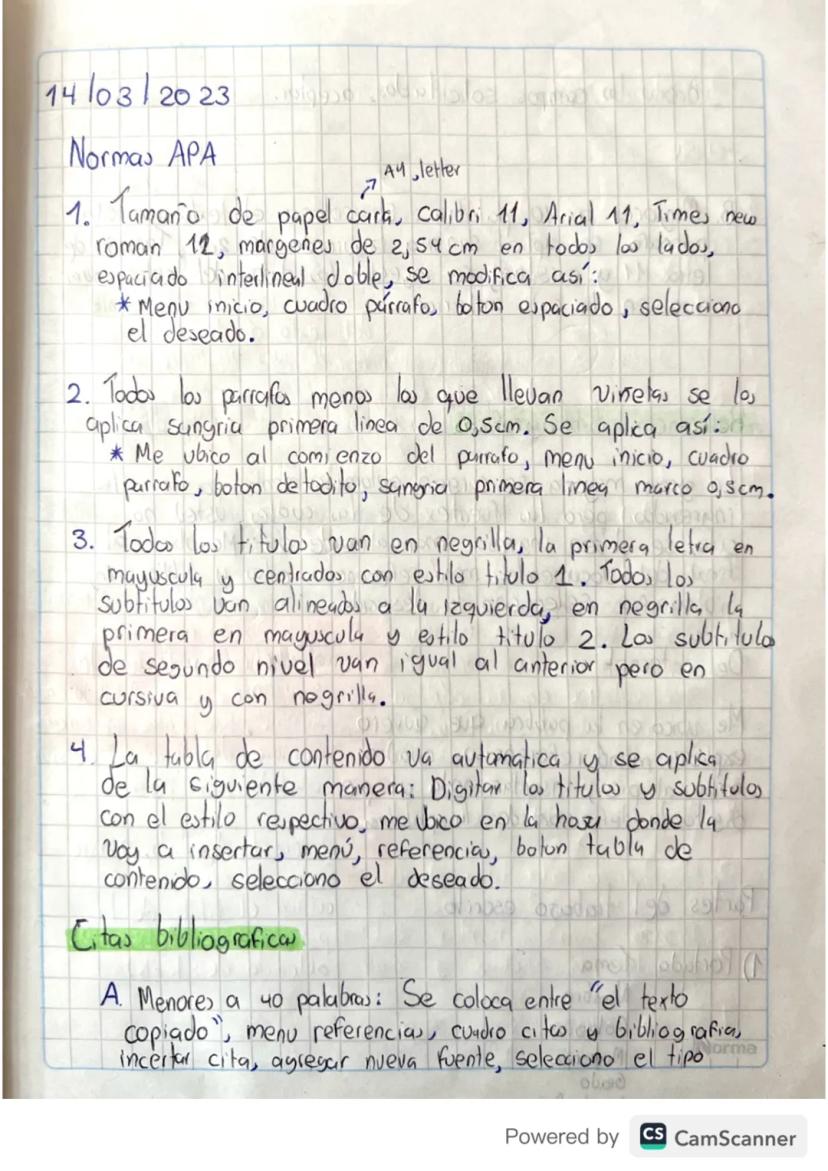 14/03/2023
Normas APA
A4, letter
1. Tamaño de papel carta, calibri 11, Arial 11, Times new
roman 12, margenes de 2,54cm en todos los lados,
espaciado interlineal doble, se modifica así:
* Menu inicio, cuadro párrafo, boton espaciado, selecciono
el deseado.
2. Todos los parrafos menos los que llevan viñetas se les
aplica sangria primera linea de 0,5cm. Se aplica así:
* Me ubico al comienzo del parrafo, menu inicio, cuadro
parrafo, boton detodito, sangria primera linea marco 0,5cm.
3. Todos los titulos van en negrilla, la primera letra en
mayuscula y centrados con estilo titulo 1. Todos los
subtitulos van alineados a la izquierda, en negrilla la
primera en mayuscula y estilo titulo 2. Los subtitulos
de segundo nivel van igual al anterior pero en
cursiva y con negrilla.
4. La tabla de contenido va automatica y se aplica
de la siguiente manera: Digitar los titulos y subtitulos
con el estilo respectivo, me ubico en la hoja donde la
voy a insertar, menú, referencia, boton tabla de
contenido, selecciono el deseado.
Citas bibliograficas
A. Menores a 40 palabras: Se coloca entre "el texto
copiado", menu referencias, cuadro citas y bibliografia,
incertar cita, agregar nueva fuente, selecciono el tipo
Norma
Powered by CS CamScanner